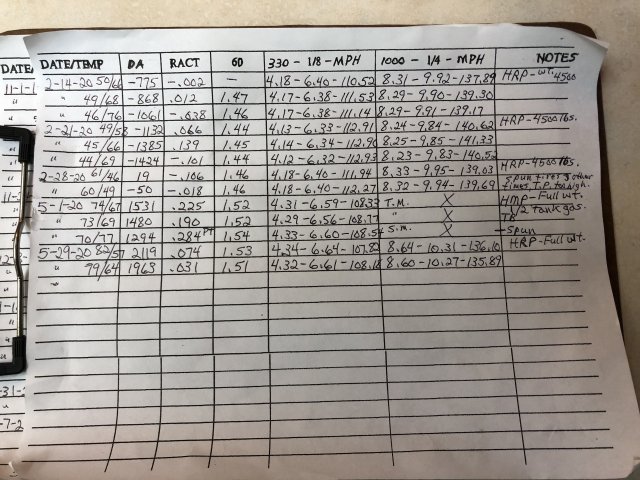 DATE/TEMP DA RACT 60 330 - 1/8 - MPH 1000 - 1/4 - MPH NOTES
2-14-20 50/66 -775 -.002 - 4.18 - 6.40 - 110.52 8.31 - 9.92 - 137.89 HRP - wt. 4500
" 49/68 -868 .012 1.47 4.17 - 6.38 - 111.53 8.29 - 9.90 - 139.30
" 46/76 -1061 -.038 1.46 4.17 - 6.38 - 111.14 8.29 - 9.91 - 139.17
2-21-20 49/58 -1132 .066 1.44 4.13 - 6.33 - 112.91 8.24 - 9.84 - 140.62 HRP-4500 lbs.
" 45/66 -1385 .139 1.45 4.14 - 6.34 - 112.90 8.25 - 9.85 - 141.33
" 44/69 -1424 -.101 1.44 4.12 - 6.32 - 112.93 8.23 - 9.83 - 140.52
2-28-20 61/46 19 -.106 1.46 4.18 - 6.40 - 111.94 8.33 - 9.95 - 139.03 HRP-4500 lbs.
" 60/49 -50 -.018 1.46 4.18 - 6.40 - 112.27 8.32 - 9.94 - 139.69 Spun tires g other
times. T.P. to high.
5-1-20 74/67 1531 .225 1.52 4.31 - 6.59 - 108.33 T.M. X HMP- Full wt.
" 73/69 1480 .190 1.52 4.29 - 6.56 - 108.77 " X 1/2 tank gas.
TB
" 70/77 1294 .284 PT 1.54 4.33 - 6.60 - 108.54 S.M. X - Spun
5-29-20 82/57 2119 .074 1.53 4.34 - 6.64 - 107.82 8.64 - 10.31 - 136.10 HRP-Full wt.
" 79/64 1963 .031 1.51 4.32 - 6.61 - 108.18 8.60 - 10.27 - 135.89
DATE
11-1-1